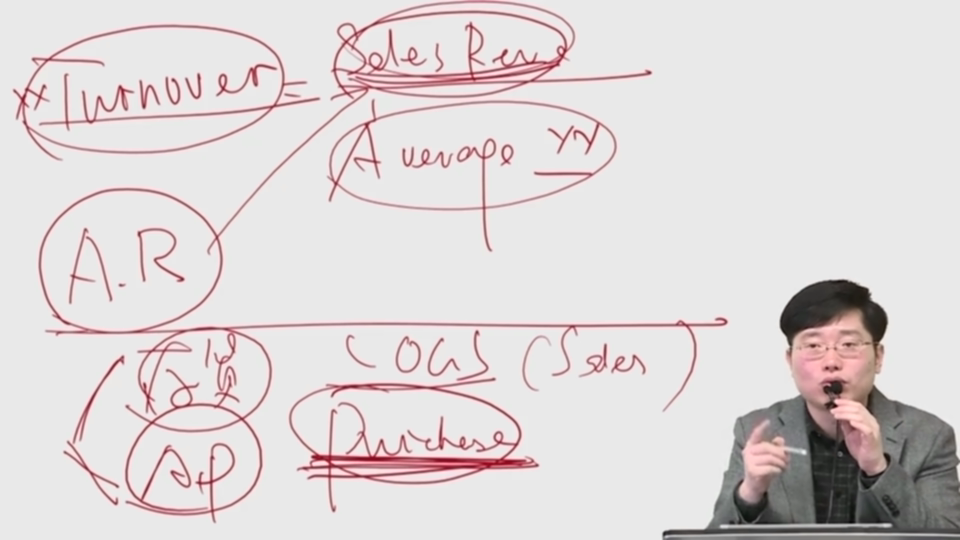 XX Turnover = Sales Reve
Average XX
A.R
存货 COGS (Sales)
AP Purchase